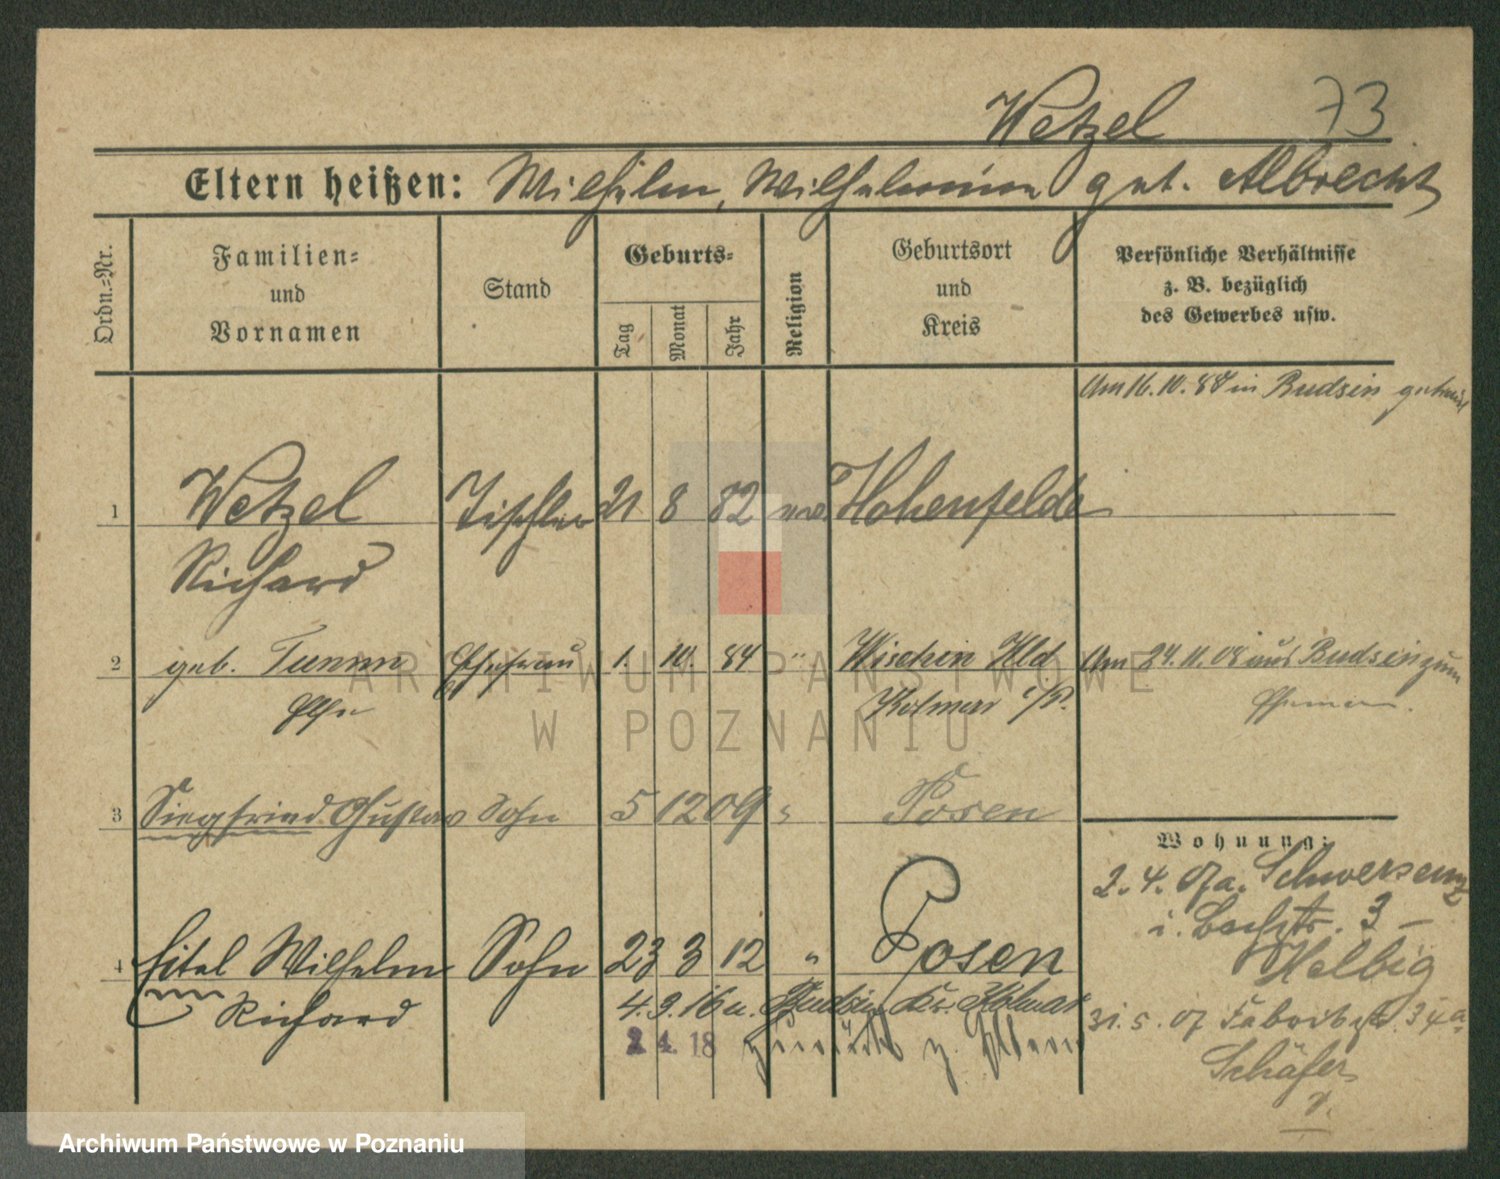 Wetzel 73
Eltern heißen: Wilhelm, Wilhelmine geb. Albrecht
Ordn.-Nr.
Familien-
und
Vornamen
Stand
Geburts-
Tag
Monat
Jahr
Religion
Geburtsort
und
Kreis
Persönliche Verhältnisse
z. B. bezüglich
des Gewerbes usw.
Am 16.10. in Budsin
1 Wetzel Tischler 21 8 82 Hohenfelde
Richard
2 geb. Tumm Ehefrau 1. 10. 84 " Wischin Hld. Am 24.11.08 aus Budsin zum
Else Kolmar i/P. Ehemann.
3 Siegfried Gustav Sohn 5 12 09 " Posen
Wohnung:
2. 4. 07 a. Schwersenz
i. 3 –
4 Eitel Wilhelm Sohn 23 3 12 " Posen
Helbig
Richard
4. 9. 16 n. Budsin Kr. Kolmar
31. 5. 07 Fabrikstr. 34a
2 4. 18 zurück z. Eltern
Schäfer
ARCHIWUM PAŃSTWOWE
W POZNANIU
Archiwum Państwowe w Poznaniu